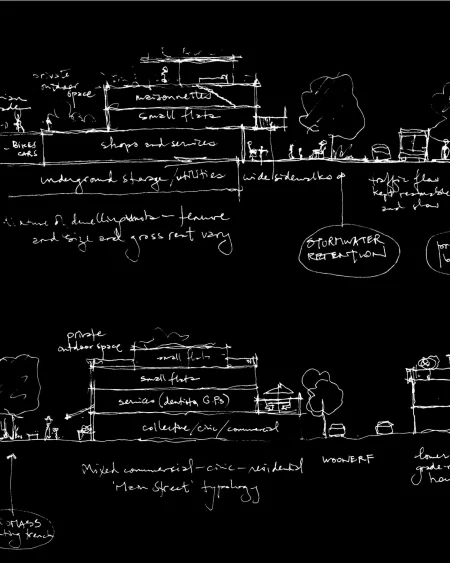 private
outdoor
space
maisonettes
small flats
BIKES
CARS
shops and services
underground storage/utilities
wide sidewalks
traffic flow
kept reasonable
and slow
of dwelling units — tenure
and size and gross rent vary
STORMWATER
RETENTION
private
outdoor space
small flats
small flats
services (dentists, GPs)
collective/civic/commercial
Mixed commercial-civic-residential
'Main Street' typology
WOONERF
lower
grade